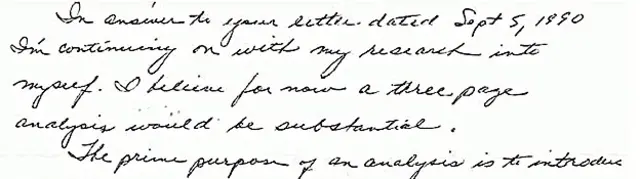 In answer to your letter dated Sept 5, 1990
I'm continuing on with my research into
myself. I believe for now a three page
analysis would be substantial.
The prime purpose of an analysis is to introduce